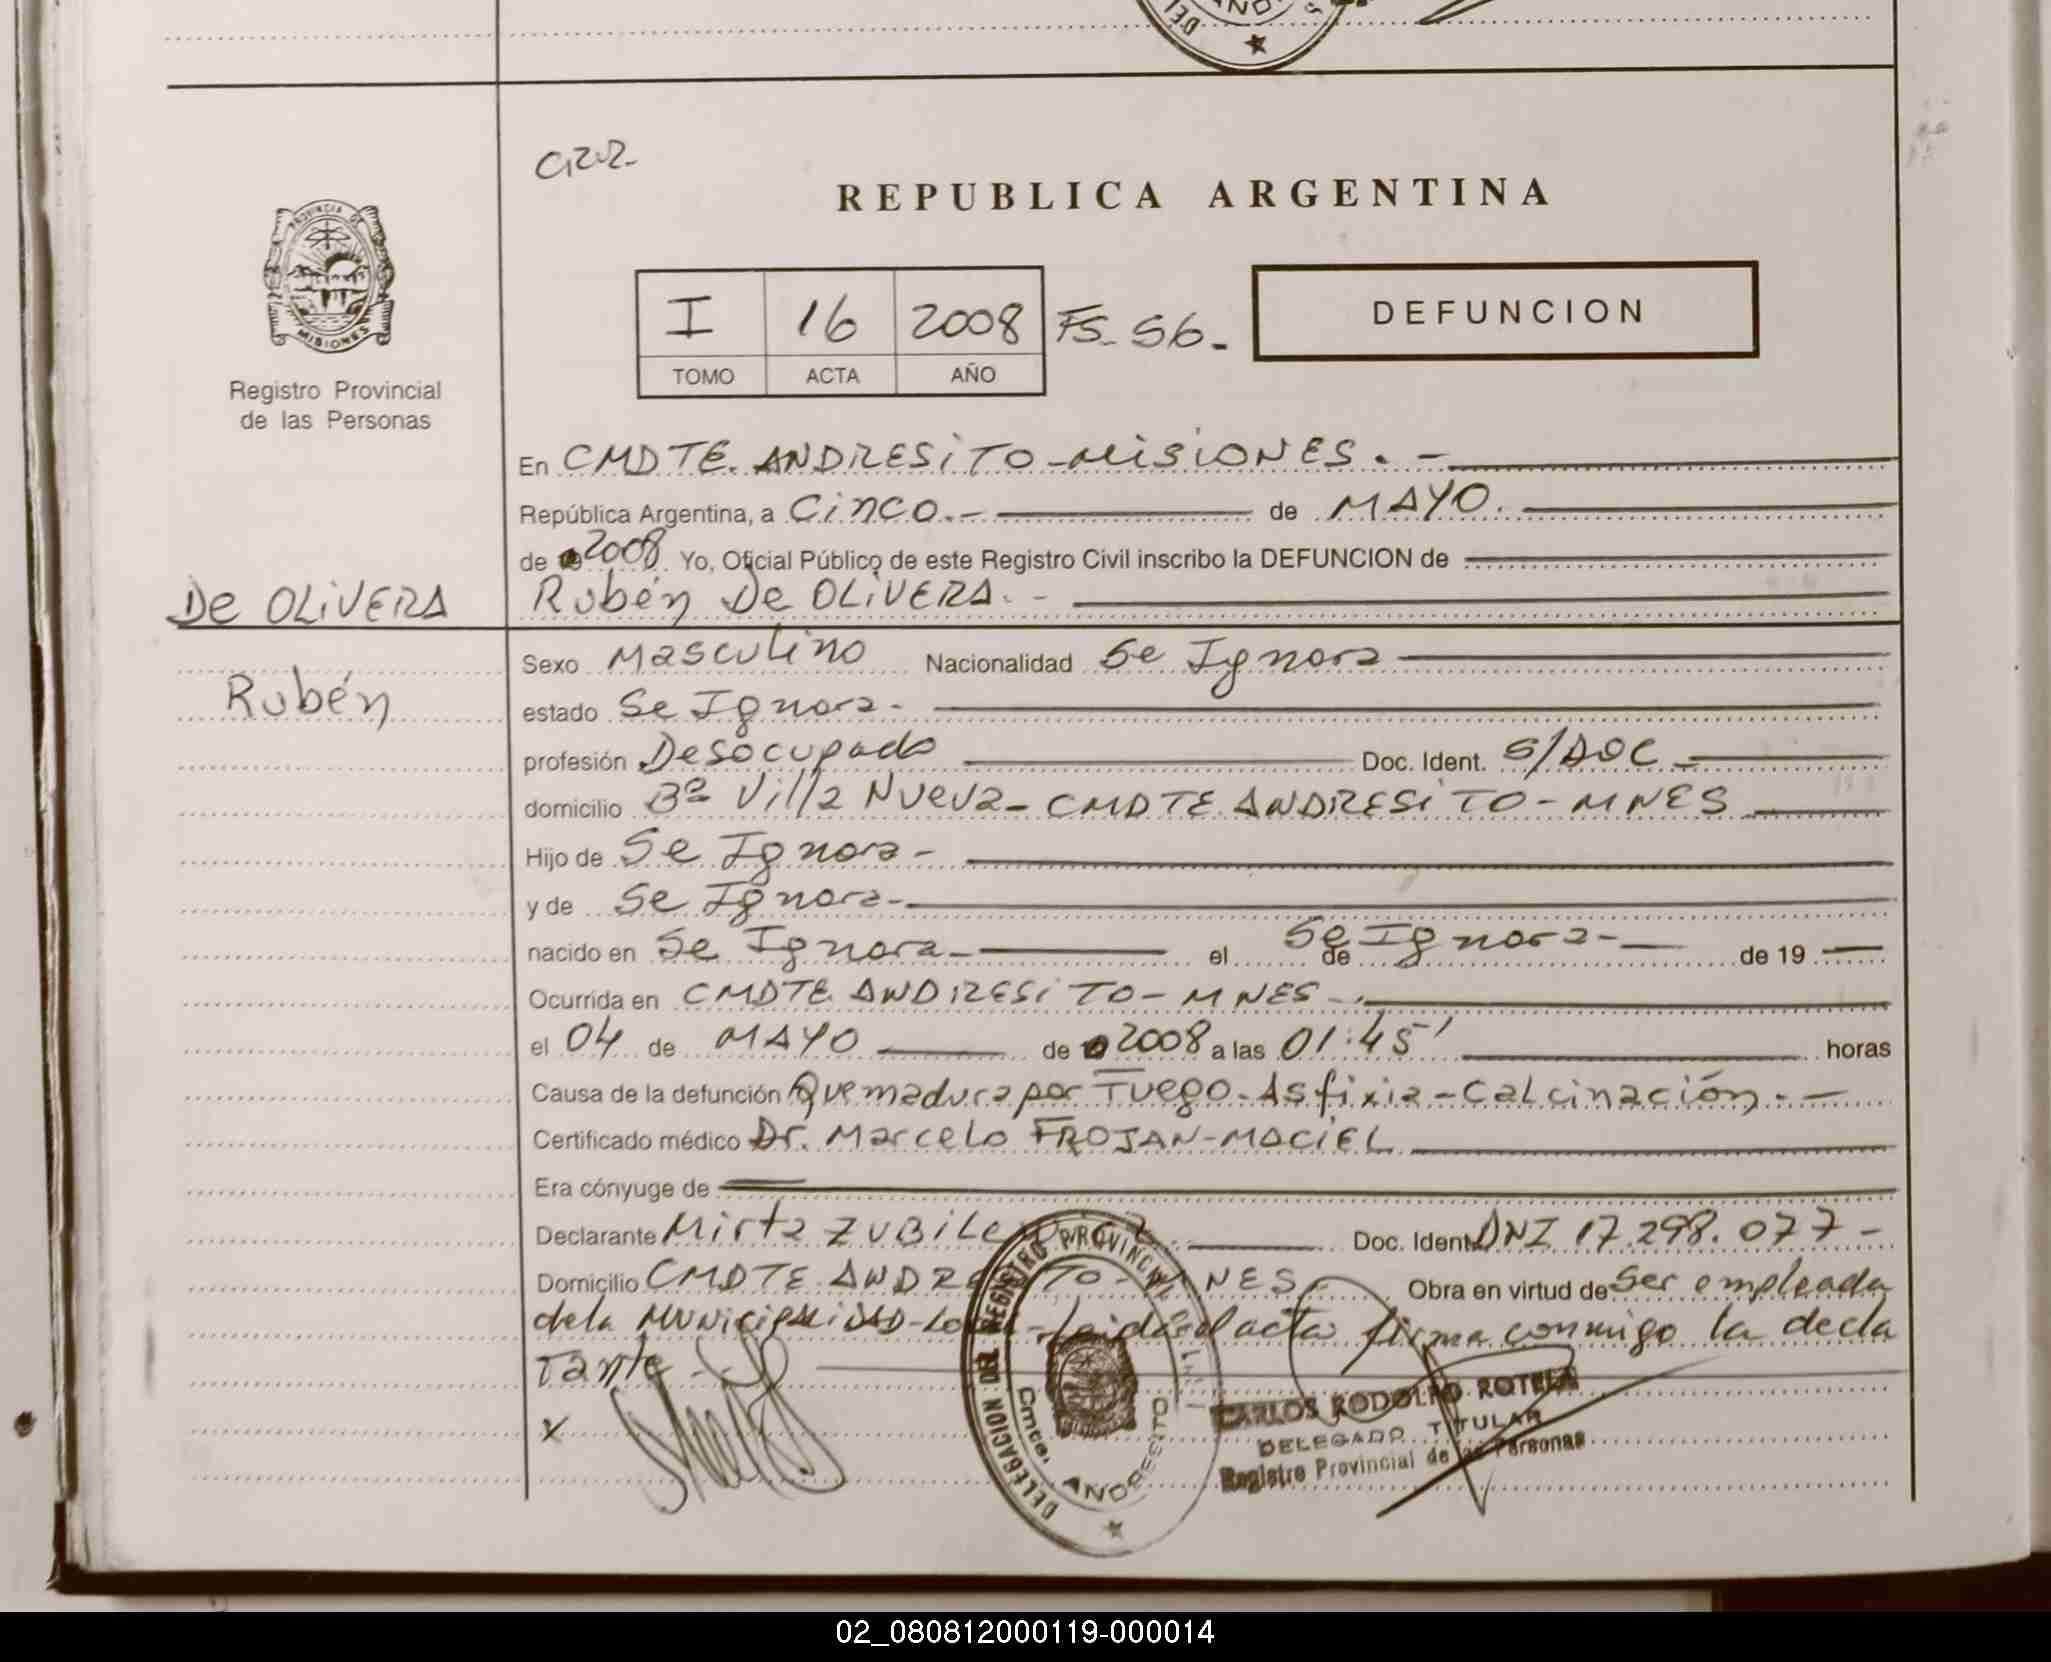 REPUBLICA ARGENTINA
PROVINCIA DE
MISIONES
Registro Provincial
de las Personas
I 16 2008 FS- 56.-
TOMO ACTA AÑO
DEFUNCION
En CMDTE. ANDRESiTO-MiSiONES.-
República Argentina, a Cinco.- de MAYO.
de 2008 Yo, Oficial Público de este Registro Civil inscribo la DEFUNCION de
De OLiVERA
Rubén De OLiVERA.-
Sexo Masculino Nacionalidad Se Ignora
Rubén
estado Se Ignora.-
profesión Desocupado Doc. Ident. S/DOC
domicilio Bº Villa Nueva-CMDTE ANDRESiTO-MNES
Hijo de Se Ignora-
y de Se Ignora-
nacido en Se Ignora- el de Se Ignora- de 19
Ocurrida en CMDTE ANDRESiTO-MNES-.
el 04 de MAYO de 2008 a las 01:45' horas
Causa de la defunción Quemadura por Fuego-Asfixia-Calcinación.-
Certificado médico Dr. Marcelo FROJAN-MACiEL
Era cónyuge de
Declarante Mirta Doc. Ident. DNI 17.298.077-
Domicilio CMDTE ANDRESiTO-MNES- Obra en virtud de Ser empleada
de la Municipalidad-Local-Leida el acta firma conmigo la decla
rante.-
x
DELEGACION DEL REGISTRO PROVINCIAL
Cmte. ANDRESITO
CARLOS RODOLFO ROTELA
DELEGADO TITULAR
Registro Provincial de las Personas
02_080812000119-000014